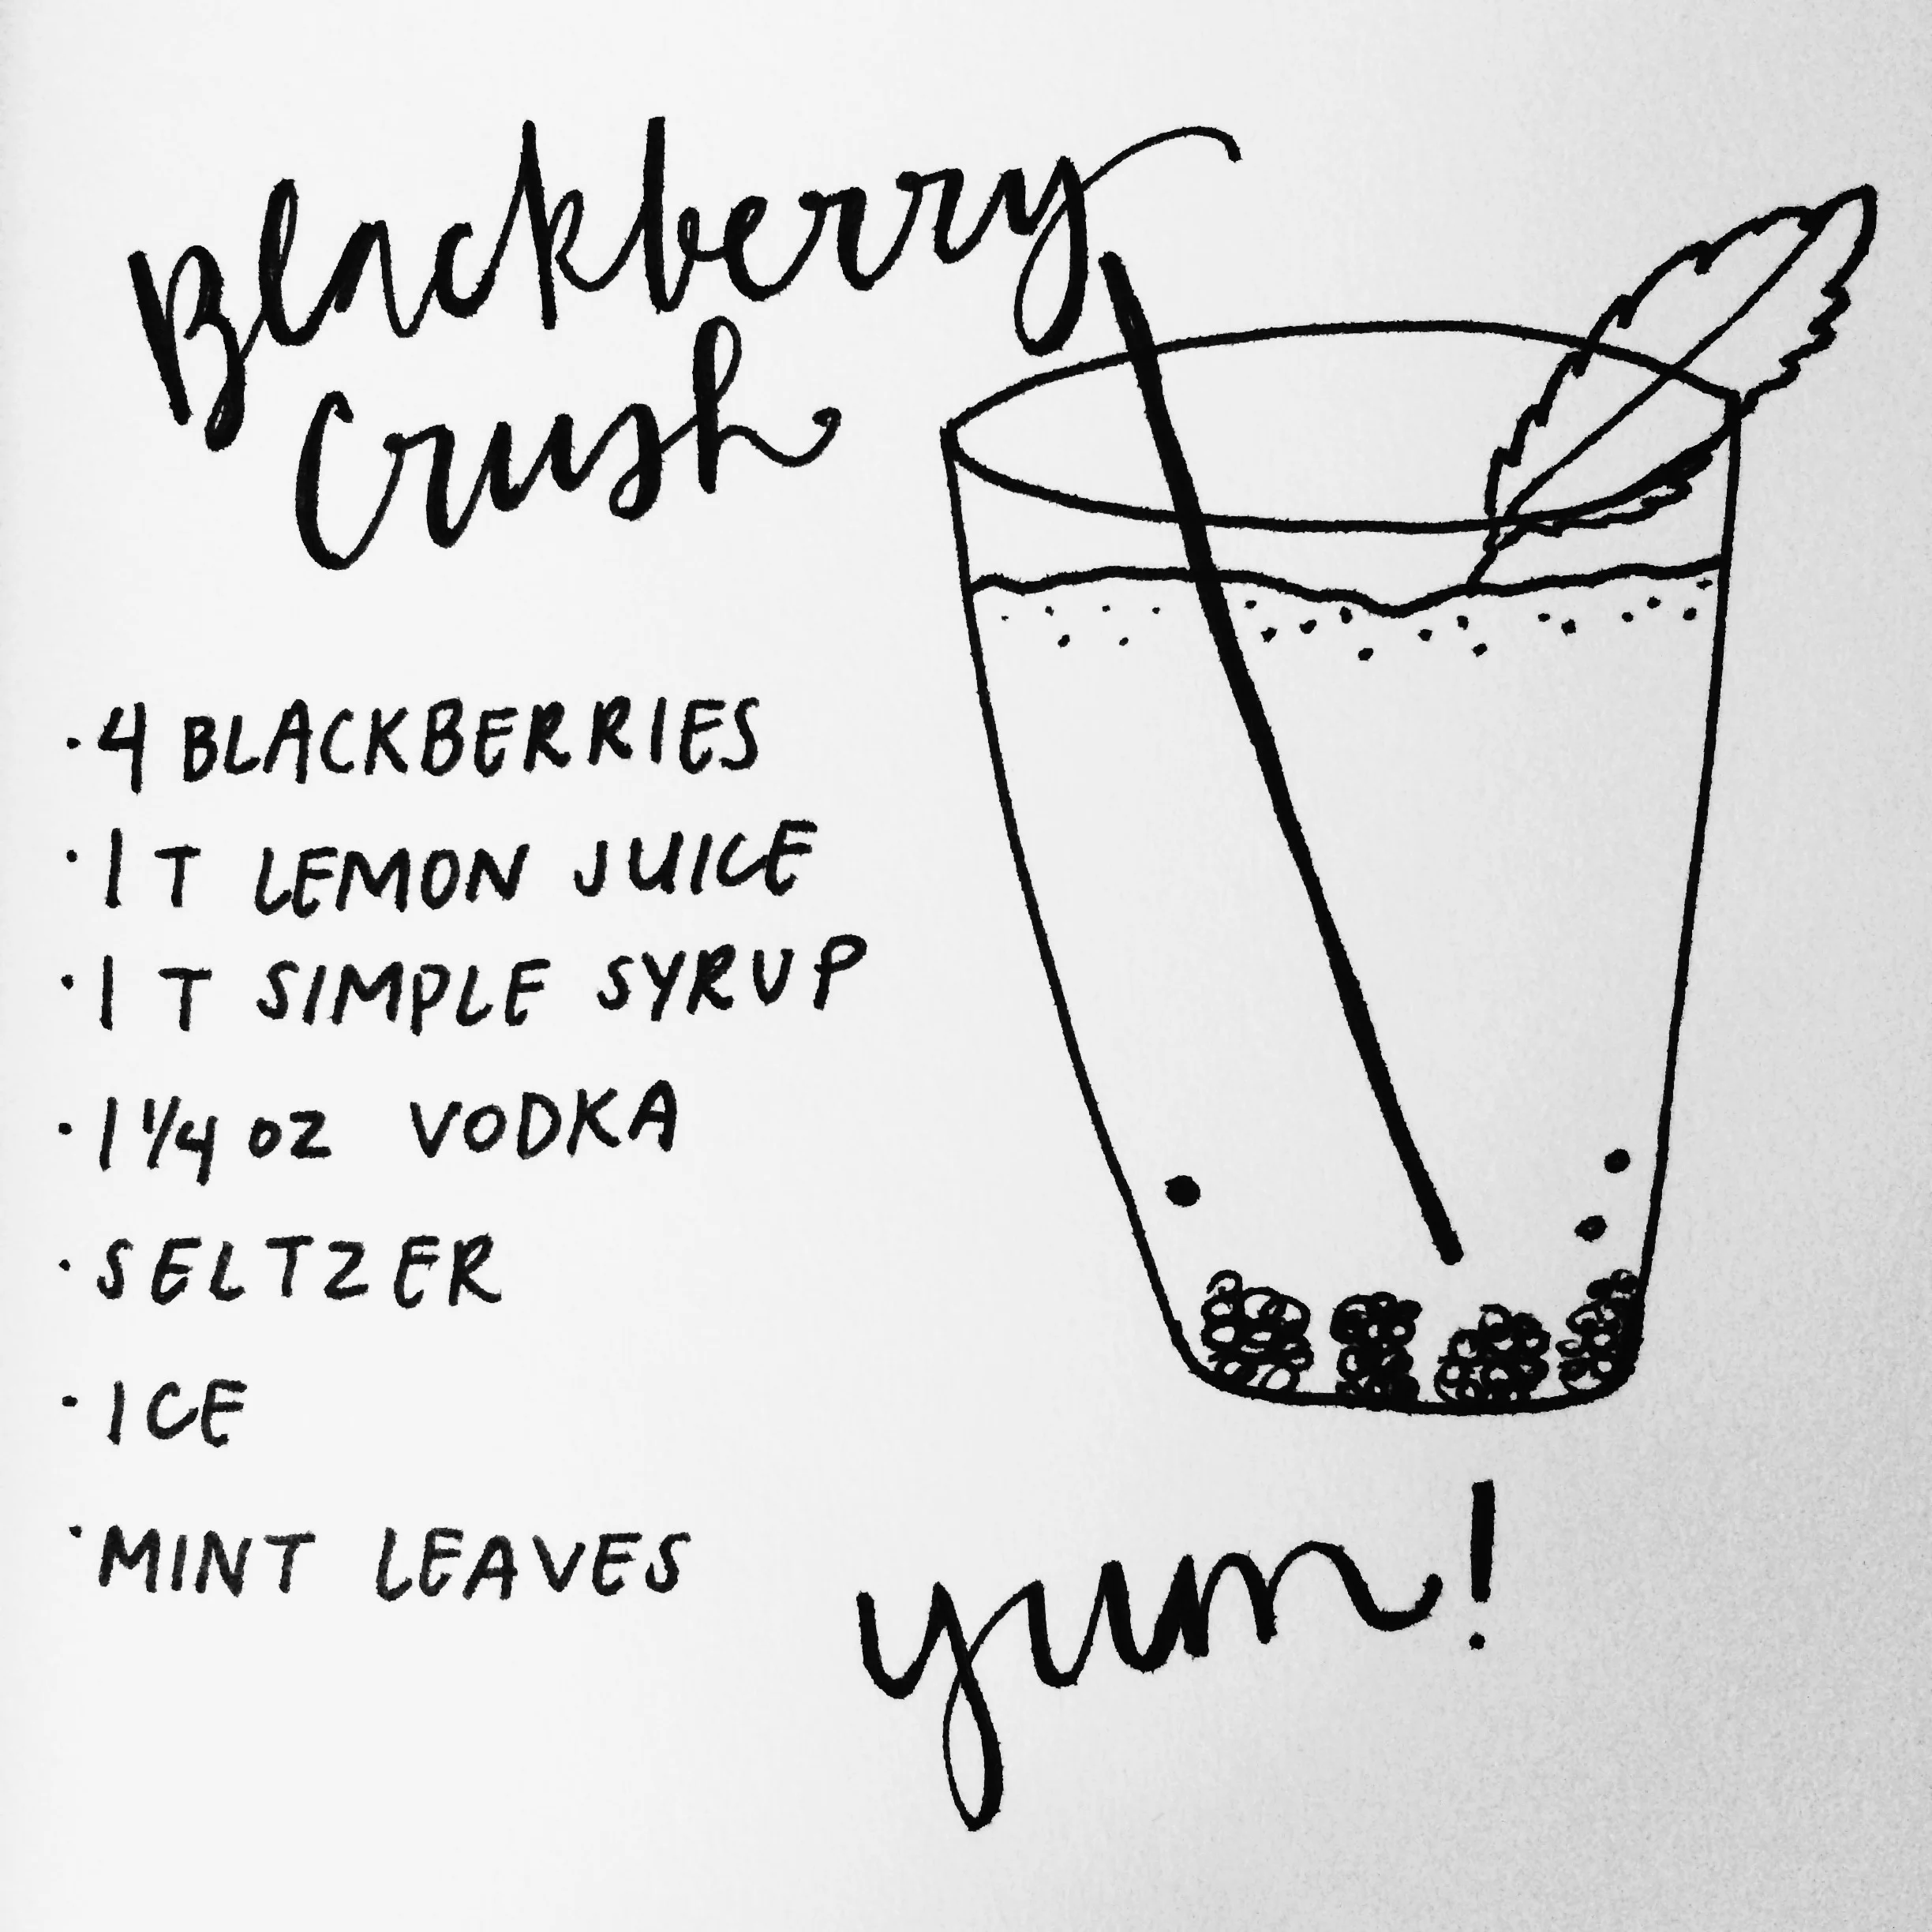 Blackberry
Crush
·4 BLACKBERRIES
·1 T LEMON JUICE
·1 T SIMPLE SYRUP
·1 1/4 oz VODKA
·SELTZER
·ICE
·MINT LEAVES
yum!